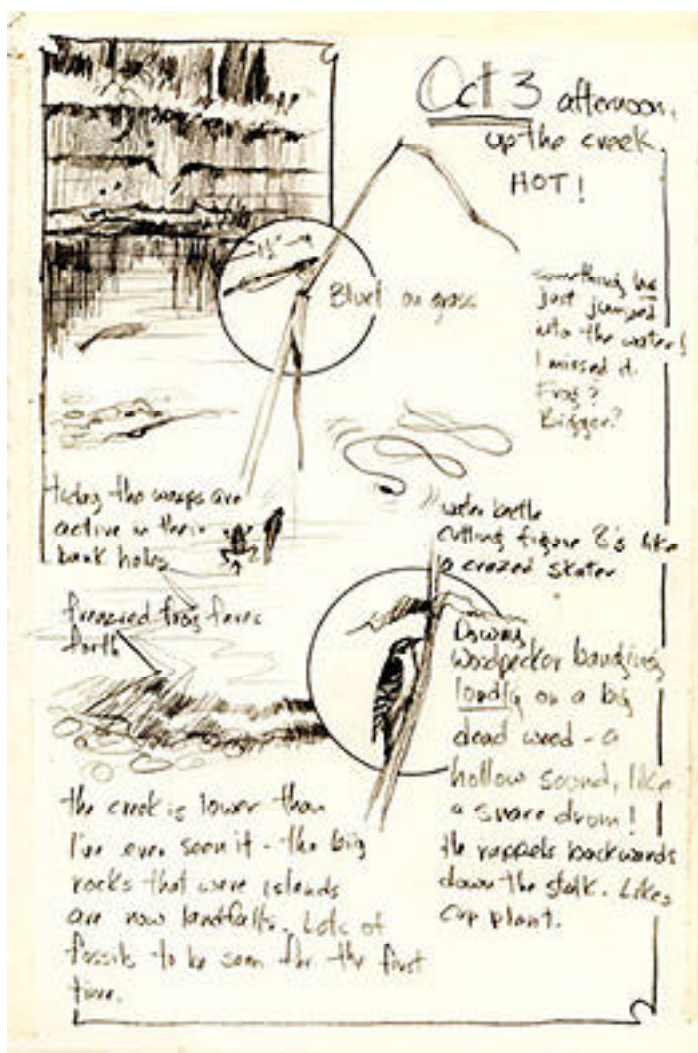 Oct 3 afternoon,
up the creek.
HOT!
1½"
Bluet on grass
something has
just jumped
into the water!
I missed it.
Frog?
Bigger?
today the wasps are
active in their
bank holes
water beetle
cutting figure 8's like
a crazed skater
frenzied frog fares
forth
Downy
woodpecker banging
loudly on a big
dead weed - a
hollow sound, like
a snare drum!
He rappels backwards
down the stalk. Likes
cup plant.
the creek is lower than
I've ever seen it - the big
rocks that were islands
are now landfalls. Lots of
fossils to be seen for the first
time.